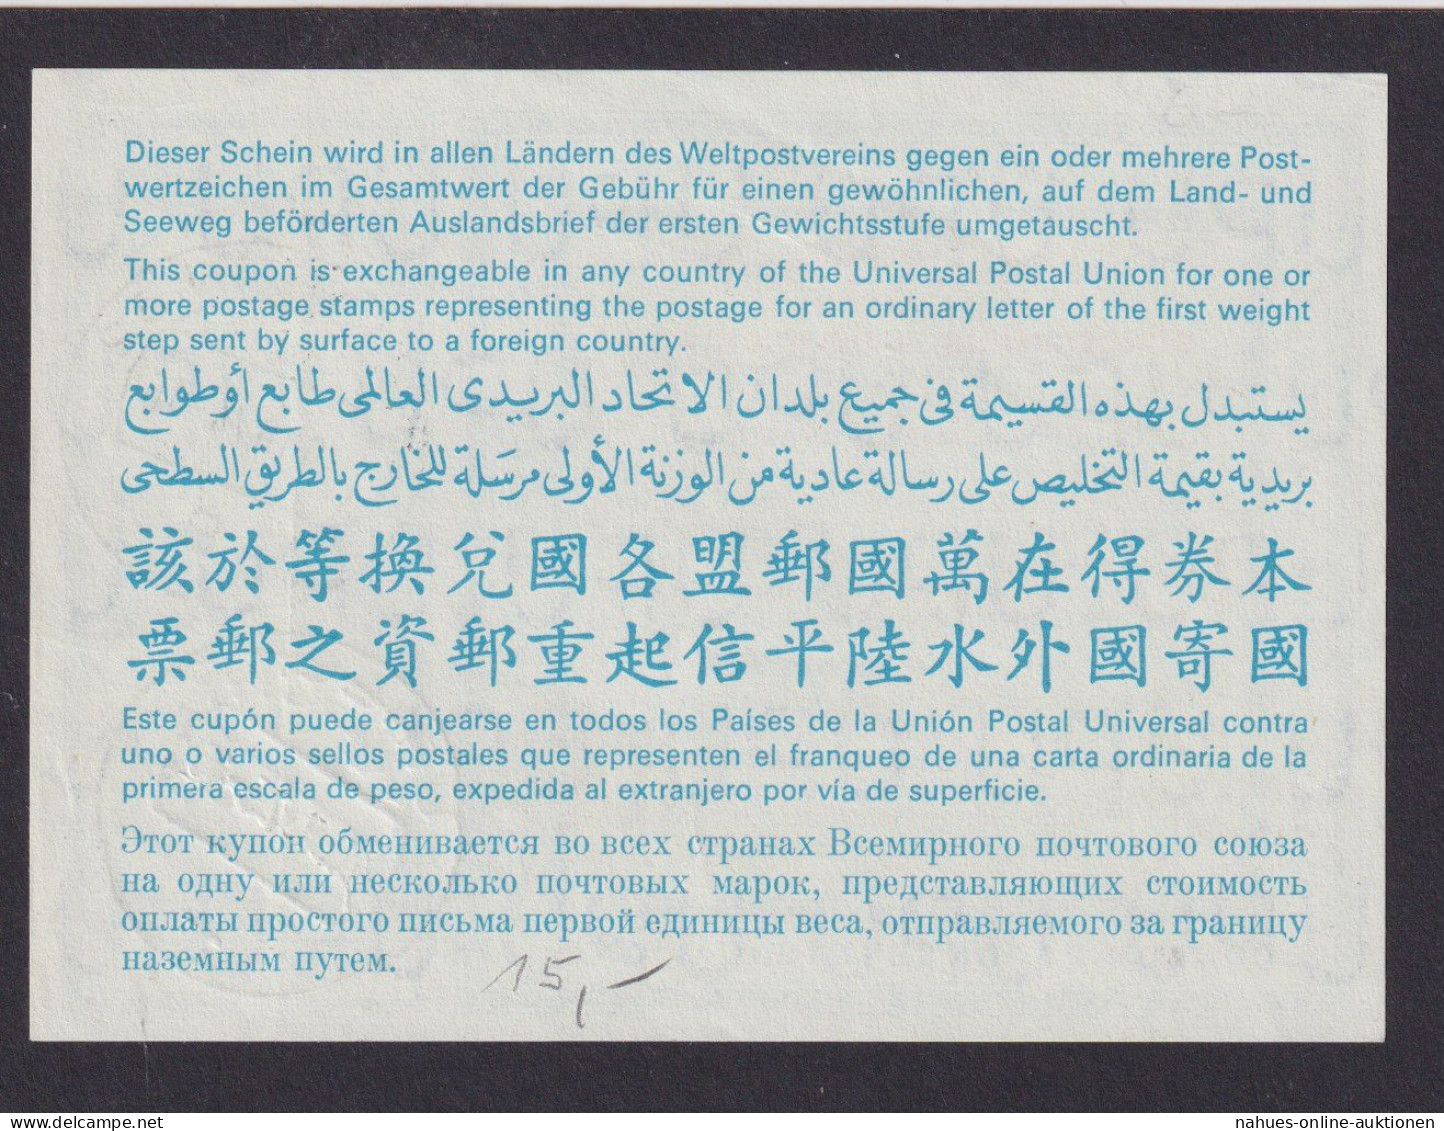 Dieser Schein wird in allen Ländern des Weltpostvereins gegen ein oder mehrere Post-
wertzeichen im Gesamtwert der Gebühr für einen gewöhnlichen, auf dem Land- und
Seeweg beförderten Auslandsbrief der ersten Gewichtsstufe umgetauscht.
This coupon is exchangeable in any country of the Universal Postal Union for one or
more postage stamps representing the postage for an ordinary letter of the first weight
step sent by surface to a foreign country.
يستبدل بهذه القسيمة فى جميع بلدان الاتحاد البريدى العالمى طابع أو طوابع
بريدية بقيمة التخليص على رسالة عادية من الوزنة الأولى مرسَلة للخارج بالطريق السطحى
本券得在萬國郵盟各國兌換等於該
國寄國外水陸平信起重郵資之郵票
Este cupón puede canjearse en todos los Países de la Unión Postal Universal contra
uno o varios sellos postales que representen el franqueo de una carta ordinaria de la
primera escala de peso, expedida al extranjero por vía de superficie.
Этот купон обменивается во всех странах Всемирного почтового союза
на одну или несколько почтовых марок, представляющих стоимость
оплаты простого письма первой единицы веса, отправляемого за границу
наземным путем.
15,-
nahues-online-auktionen